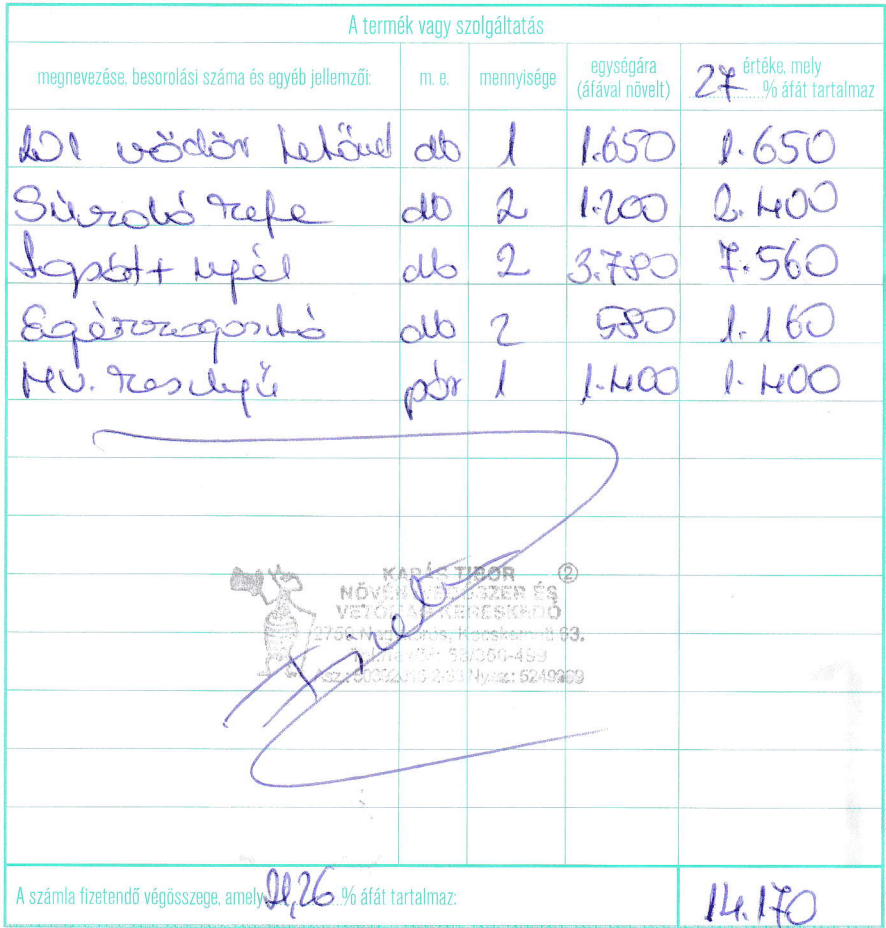 A termék vagy szolgáltatás
megnevezése, besorolási száma és egyéb jellemzői: m. e. mennyisége egységára (áfával növelt) 27 értéke, mely % áfát tartalmaz
20 l vödör tetővel db 1 1.650 1.650
Súroló kefe db 2 1.200 2.400
Lapát + nyél db 2 3.780 7.560
Egérragasztó db 2 580 1.160
MV. kesztyű pár 1 1.400 1.400
KAPÁS TIBOR ②
NÖVÉNY ÉS
KERESKEDŐ
63.
53/350-499
5249969
Fizetve
A számla fizetendő végösszege, amely 21,26 % áfát tartalmaz: 14.170